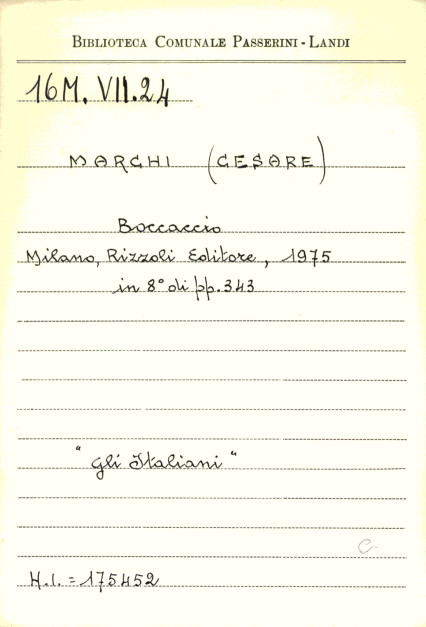 BIBLIOTECA COMUNALE PASSERINI - LANDI
16M. VII.24
MARCHI (CESARE)
Boccaccio
Milano, Rizzoli Editore, 1975
in 8° di pp. 343
"Gli Italiani"
C
H.I. = 175452